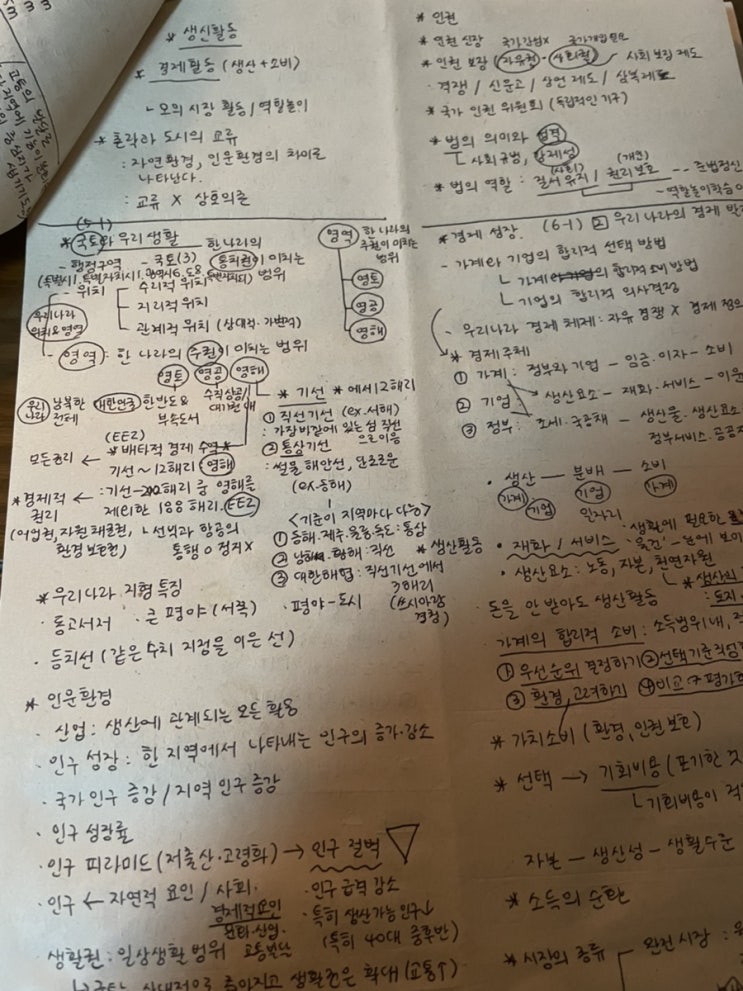 * 생산활동
* 경제활동 (생산+소비)
ㄴ 모의 시장 활동 / 역할놀이
* 촌락과 도시의 교류
: 자연환경, 인문환경의 차이로
나타난다.
: 교류 X 상호의존
* 인권
* 인권 신장 국가간섭X 국가개입필요
* 인권 보장 (자유권 · 사회권) 사회 보장 제도
· 격쟁 / 신문고 / 상언 제도 / 삼복제
* 국가 인권 위원회 (독립적인 기구)
* 법의 의미와 성격
ㄴ 사회규범, 강제성
(사회) (개인)
* 법의 역할 : 질서유지 / 권리보호 -- 준법정신
~ 역할놀이학습
(5-1)
* 국토와 우리 생활
한 나라의
- 행정구역 - 국토(3) 통치권이 미치는
범위
- 위치
수리적 위치
지리적 위치
관계적 위치 (상대적·가변적)
우리나라
위치&영역
- 영역 : 한 나라의 주권이 미치는 범위
영토 영공 영해
영역
한 나라의
주권이 미치는
범위
영토
영공
영해
우리나라
남북한
전체
대한민국 한반도&
부속도서
수직상공/
대기권 내
(EEZ)
모든권리 ← * 배타적 경제 수역 *
기선~12해리 영해
* 경제적 ← : 기선~200해리 중 영해를
권리 제외한 188해리. EEZ
(어업권, 자원 채굴권,
환경 보호권)
ㄴ 선박과 항공의
통행 O 정지X
* 기선 * 에서 12해리
① 직선기선 (ex.서해)
: 가장 바깥에 있는 섬 직선
으로 이음
② 통상기선
: 썰물 해안선, 단조로운
(ex.동해)
<기준이 지역마다 다름>
① 동해·제주·울릉·독도 : 통상
② 남해·황해 : 직선
③ 대한해협 : 직선기선에서
3해리
* 생산활동
* 우리나라 지형 특징
· 동고서저 · 큰 평야 (서쪽) · 평야-도시
· 등치선 (같은 수치 지점을 이은 선)
* 인문환경
· 산업 : 생산에 관계되는 모든 활동
· 인구 성장 : 한 지역에서 나타내는 인구의 증가·감소
· 국가 인구 증감 / 지역 인구 증감
· 인구 성장률
· 인구 피라미드 (저출산·고령화) → 인구 절벽
· 인구 ← 자연적 요인 / 사회·
경제적요인
· 인구 급격 감소
· 특히 생산가능인구↓
(특히 40대 중후반)
생활권 : 일상생활 범위 교통발달
ㄴ 국토는 상대적으로 좁아지고 생활권은 확대 (교통↑)
* 경제 성장. (6-1) ② 우리 나라의 경제 발전
- 가계와 기업의 합리적 선택 방법
ㄴ 가계의 합리적 소비 방법
ㄴ 기업의 합리적 의사결정
- 우리나라 경제 체제 : 자유 경쟁 X 경제 정의
* 경제주체
① 가계 : 정부와 기업 - 임금·이자 - 소비
② 기업 : 생산요소 - 재화·서비스 - 이윤
③ 정부 : 조세·국공채 - 생산물·생산요소
정부서비스·공공재
· 생산 - 분배 - 소비
가계 기업 가계
기업 일자리
· 생활에 필요한
· 재화 / 서비스 "물건"
· 생산요소 : 노동, 자본, 천연자원
ㄴ * 생산의
토지·
돈을 안 받아도 생산활동
가계의 합리적 소비 : 소득범위내,
① 우선순위 결정하기 ② 선택기준작성
③ 환경, 고려하기 ④ 비교 & 평가
* 가치소비 (환경, 인권 보호)
* 선택 → 기회비용 (포기한 것
ㄴ 기회비용이 적
자본 - 생산성 - 생활수준
* 소득의 순환
* 시장의 종류 완전시장 :